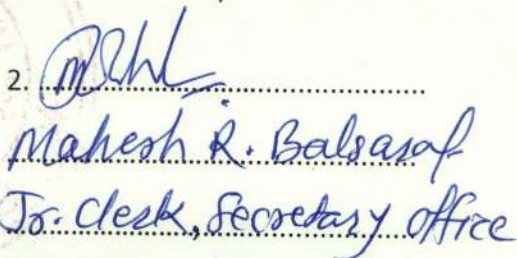 2.
Mahesh R. Balsaraf
Jr. Clerk, Secretary office